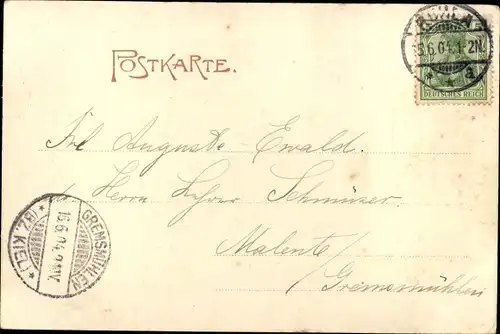 POSTKARTE.
15.6.04.1-2N.
DEUTSCHES REICH
Frl Auguste Ewald.
Herrn Lehrer Schmüser
Malente/
Gremsmühlen
GREMSMÜHLEN
16.6.04
* (BZ. KIEL) *